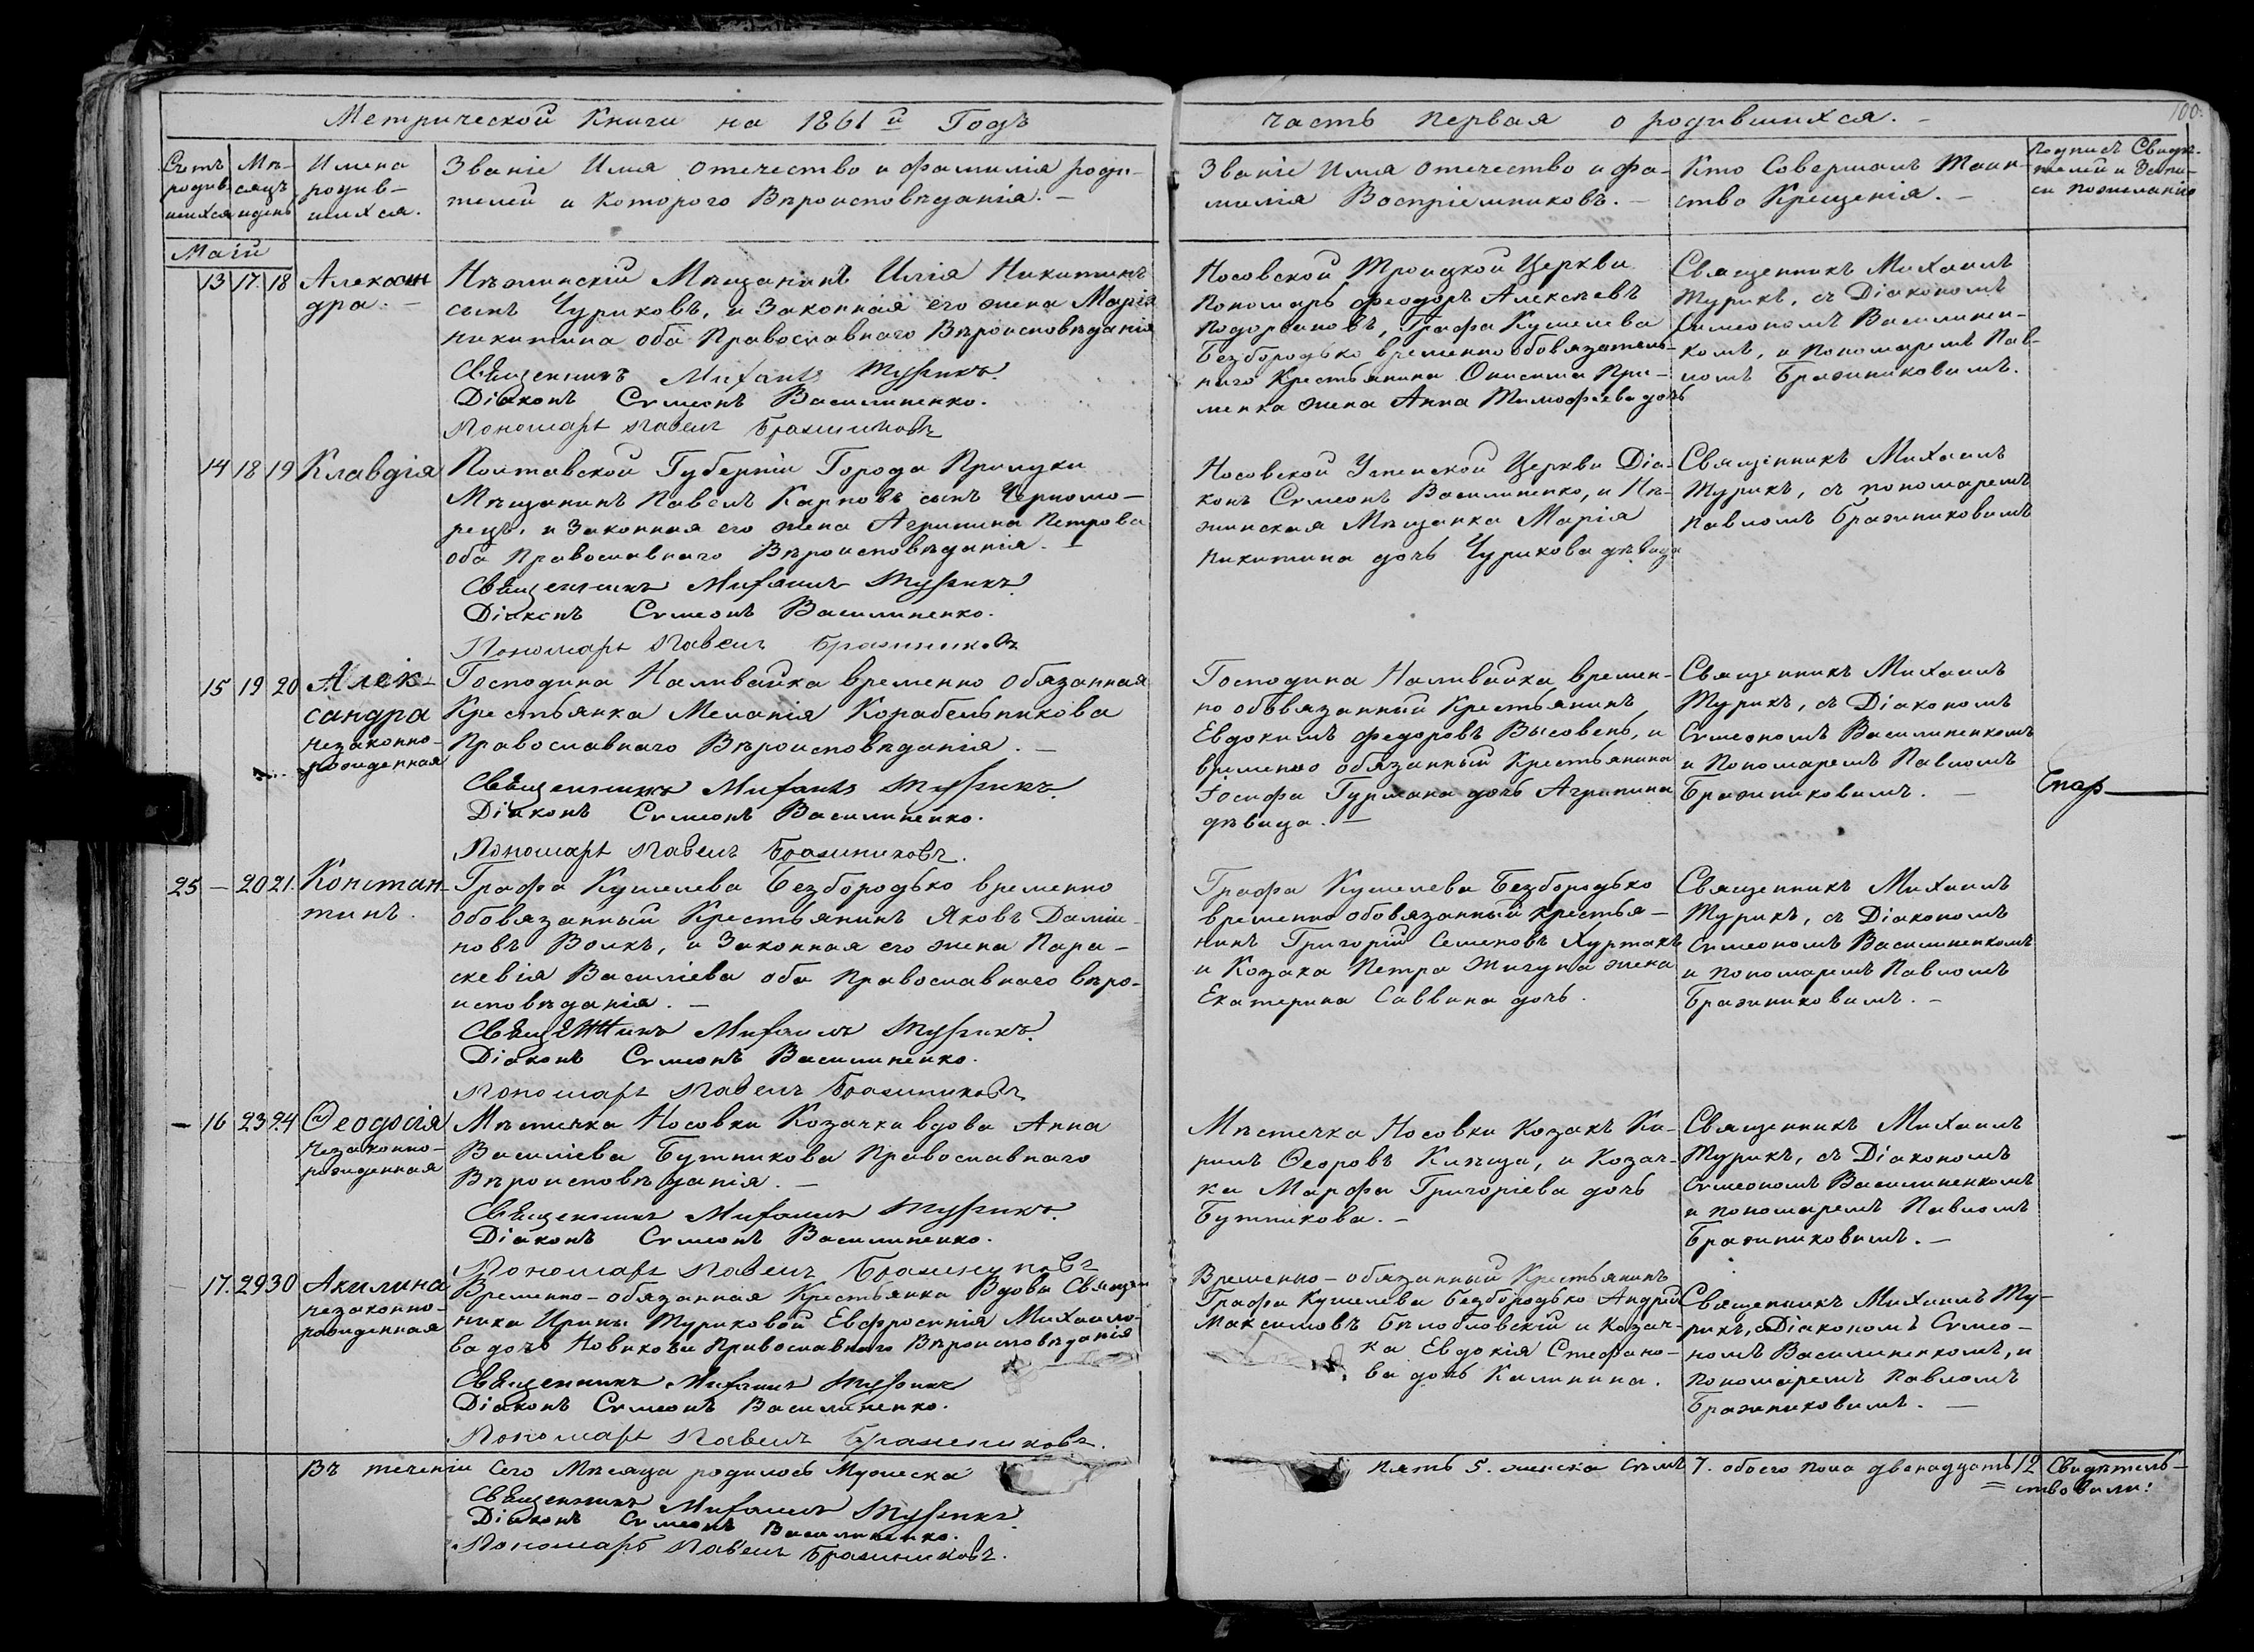 Метрической Книги на 1861й Годъ
часть первая о родившихся.
100.
Счетъ родив-шихся
Мѣ-сяцъ и день
Имена родив-шихся.
Званіе Имя отечество и фамилія роди-
телей и которого Вѣроисповѣданія. —
Званіе Имя отечество и фа-
милія Воспріемниковъ. —
Кто Совершалъ Таин-
ство Крещенія. —
подписъ Свидѣ-
телей и Запи-
си по желанію
Маій
13 17 18 Александра. —
Нѣжинскій Мѣщанинъ Илія Никитинъ
сынъ Чуриковъ, и Законная его жена Марія
никитина оба Православнаго Вѣроисповѣданія
Священникъ Михаилъ Турикъ.
Діаконъ Сѵмеонъ Василиненко.
Пономарь Павелъ Бражниковъ
Носовской Троицкой Церкви
Пономарь Феодоръ Алексѣевъ
Графа Кушелева
Безбородько временно обовязатель-
наго Крестьянина Онисима При-
менка жена Анна Тимофѣева дочь
Священникъ Михаилъ
Турикъ, съ Діакономъ
Сѵмеономъ Василинен-
комъ, и пономаремъ Пав-
ломъ Бражниковымъ.
14 18 19 Клавдія
Полтавской Губерніи Города Прилуки
Мѣщанинъ Павелъ Карповъ сынъ Черномо-
рецъ, и Законная его жена Агрипина Петрова
оба Православнаго Вѣроисповѣданія. —
Священникъ Михаилъ Турикъ.
Діаконъ Сѵмеонъ Василиненко.
Пономарь Павелъ Бражниковъ
Носовской Успенской Церкви Діа-
конъ Сѵмеонъ Василиненко, и Нѣ-
жинская Мѣщанка Марія
никитина дочь Чурикова дѣвица
Священникъ Михаилъ
Турикъ, съ пономаремъ
Павломъ Бражниковымъ
15 19 20 Алек-
сандра
незаконно-
рожденная
Господина Наливайка временно обязанная
Крестьянка Меланія Корабельникова
Православнаго Вѣроисповѣданія. —
Священникъ Михаилъ Турикъ.
Діаконъ Сѵмеонъ Василиненко.
Пономарь Павелъ Бражниковъ.
Господина Наливайка времен-
но обовязанный Крестьянинъ
Евдокимъ Федоровъ Высовень, и
временно обязанный Крестьянина
Іосифа Гурмана дочь Агрипина
дѣвица. —
Священникъ Михаилъ
Турикъ, съ Діакономъ
Сѵмеономъ Василиненкомъ
и Пономаремъ Павломъ
Бражниковымъ. —
25 — 20 21. Констан-
тинъ.
Графа Кушелева Безбородько временно
обовязанный Крестьянинъ Яковъ Даміа-
новъ Волкъ, и Законная его жена Пара-
скевія Василіева оба православнаго вѣро-
исповѣданія. —
Священникъ Михаилъ Турикъ.
Діаконъ Сѵмеонъ Василиненко.
Пономарь Павелъ Бражниковъ
Графа Кушелева Безбородько
временно обовязанный крестья-
нинъ Григорій Семеновъ Хуртакъ
и Козака Петра Жигуна жена
Екатерина Саввина дочь.
Священникъ Михаилъ
Турикъ, съ Діакономъ
Сѵмеономъ Василиненкомъ
и пономаремъ Павломъ
Бражниковымъ. —
— 16 23 24 Ѳеодосія
незаконно-
рожденная
Мѣстечка Носовки Козачка вдова Анна
Василіева Бутникова Православнаго
Вѣроисповѣданія. —
Священникъ Михаилъ Турикъ.
Діаконъ Сѵмеонъ Василиненко.
Пономарь Павелъ Бражниковъ
Мѣстечка Носовки Козакъ Ки-
рилъ Ѳеоровъ и Козач-
ка Марфа Григоріева дочь
Бутникова. —
Священникъ Михаилъ
Турикъ, съ Діакономъ
Сѵмеономъ Василиненкомъ
и пономаремъ Павломъ
Бражниковымъ. —
17. 29 30 Акилина
незаконно-
рожденная
Временно-обязанная Крестьянка Вдовы Священ
ника Ирины Туриковой Евфросинія Михайло-
ва дочь Новикова Православнаго Вѣроисповѣданія
Священникъ Михаилъ Турикъ
Діаконъ Сѵмеонъ Василиненко.
Пономарь Павелъ Бражниковъ.
Временно-обязанный Крестьянинъ
Графа Кушелева безбородько Андрей
Максимовъ и Козач-
ка Евдокія Стефано-
ва дочь Калинина.
Священникъ Михаилъ Ту-
рикъ, съ Діакономъ Сѵмео-
номъ Василиненкомъ, и
пономаремъ Павломъ
Бражниковымъ. —
Въ теченіи Сего Мѣсяца родилось Мужеска
пять 5. женска Семь 7. обоего пола двенадцать 12 Свидѣтель-
ствовали:
Священникъ Михаилъ Турикъ.
Діаконъ Сѵмеонъ Василиненко.
Пономарь Павелъ Бражниковъ.